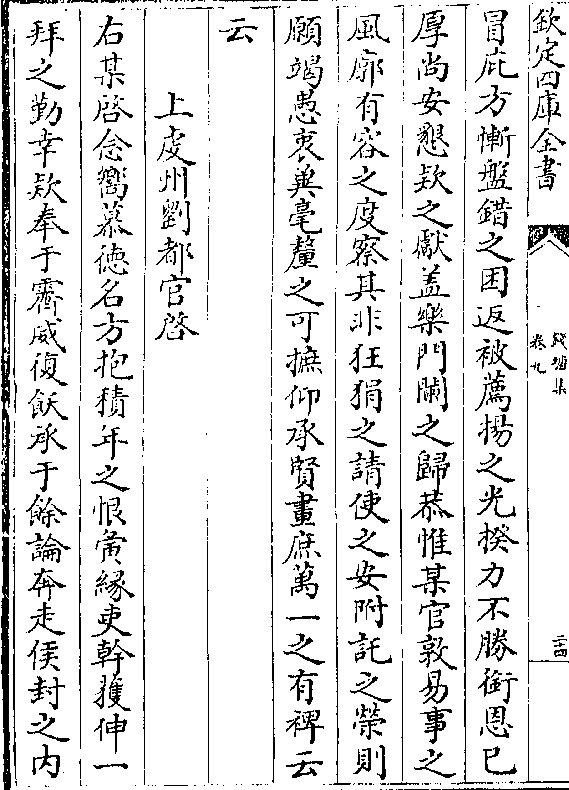 欽定四庫全書
錢塘集
卷九
二十四
冒庇方慚盤錯之困返被薦揚之光揆力不勝銜恩已
厚尚安懇欵之獻盖樂門闌之歸恭惟某官敦易事之
風廓有容之度察其非狂狷之請使之安附託之榮則
願竭愚衷冀毫釐之可摭仰承賢畫庶萬一之有裨云
云
上虔州劉都官啓
右某啓念嚮慕徳名方抱積年之恨夤緣吏幹獲伸一
拜之勤幸欵奉于霽威復飫承于餘論奔走侯封之内